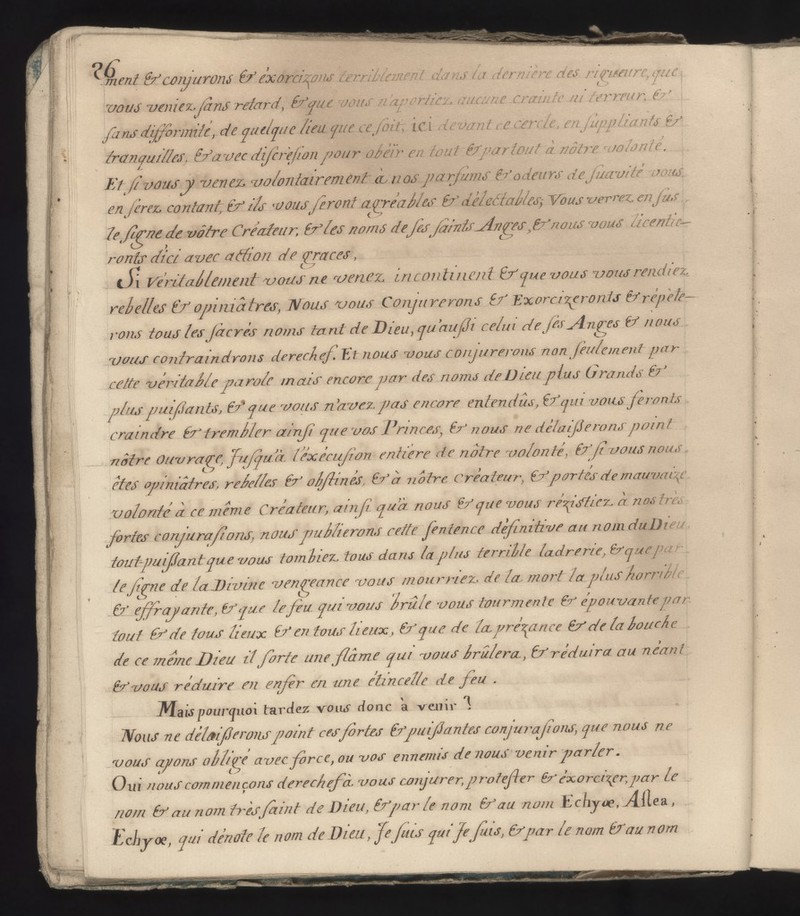 26
ment & conjurons & éxorcizons terriblement dans la dernière des rigueurs, que
vous veniez sans retard, & que vous n'aportiez aucune crainte ni terreur, &
sans difformité, de quelque lieu que ce soit, ici devant ce cercle, en suppliants &
tranquilles, & avec discresion pour obéïr en tout & partout à nôtre volonté.
Et si vous y venez volontairement à nos parfums & odeurs de suavité vous
en serez contant, & ils vous seront agréables & délectables; Vous verrez en sus
le signe de vôtre Créateur, & les noms de ses saints Anges, & nous vous licentie-
ronts d'ici avec action de graces,
Si Véritablement vous ne venez incontinent & que vous vous rendiez
rebelles & opiniâtres, Nous vous Conjurerons & Exorcizeronts & répète-
rons tous les sacrés noms tant de Dieu, qu'aussi celui de ses Anges & nous
vous contraindrons derechef. Et nous vous conjurerons non seulement par
cette véritable parole mais encore par des noms de Dieu plus Grands &
plus puissants, & que vous n'avez pas encore entendûs, & qui vous feronts
craindre & trembler ainsi que vos Princes, & nous ne délaisserons point
nôtre ouvrage, Jusqu'à l'éxécusion entiere de nôtre volonté, & si vous nous
êtes opiniâtres, rebelles & obstinés, & à nôtre créateur, & portés de mauvaize
volonté à ce même Créateur, ainsi qu'à nous & que vous rézistiez à nos très
fortes conjurasions, nous publierons cette sentence définitive au nom du Dieu
tout-puissant que vous tombiez tous dans la plus terrible ladrerie, & que par
le signe de la Divine vengeance vous mourriez de la mort la plus horrible
& effrayante, & que le feu qui vous brûle vous tourmente & épouvante par
tout & de tous lieux & en tous lieux, & que de la prézance & de la bouche
de ce même Dieu il sorte une flâme qui vous brûlera, & réduira au néant
& vous réduire en enfer en une étincelle de feu.
Mais pourquoi tardez vous donc à venir ?
Nous ne délaisserons point ces fortes & puissantes conjurasions, que nous ne
vous ayons obligé avec force, ou vos ennemis de nous venir parler.
Oui nous commençons derechef à vous conjurer, protester & éxorcizer, par le
nom & au nom très saint de Dieu, & par le nom & au nom Echyœ, Aslea,
Echyœ, qui dénote le nom de Dieu, Je suis qui Je suis, & par le nom & au nom